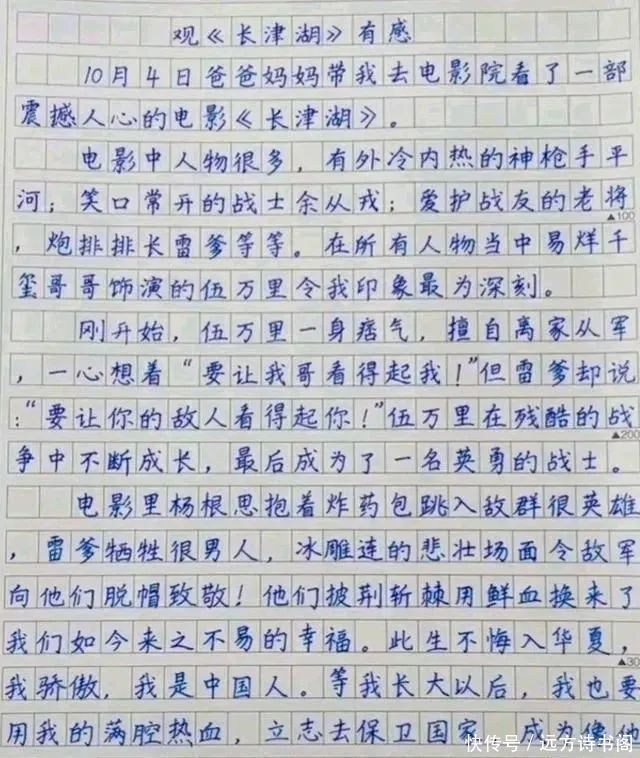 观《长津湖》有感
10月4日爸爸妈妈带我去电影院看了一部
震撼人心的电影《长津湖》。
电影中人物很多，有外冷内热的神枪手平
河；笑口常开的战士余从戎；爱护战友的老将
▲100
，炮排排长雷爹等等。在所有人物当中易烊千
玺哥哥饰演的伍万里令我印象最为深刻。
刚开始，伍万里一身痞气，擅自离家从军
，一心想着“要让我哥看得起我！”但雷爹却说
：“要让你的敌人看得起你！”伍万里在残酷的战
▲200
争中不断成长，最后成为了一名英勇的战士。
电影里杨根思抱着炸药包跳入敌群很英雄
，雷爹牺牲很男人，冰雕连的悲壮场面令敌军
向他们脱帽致敬！他们披荆斩棘用鲜血换来了
我们如今来之不易的幸福。此生不悔入华夏，
▲30
我骄傲，我是中国人。等我长大以后，我也要
用我的满腔热血，立志去保卫国家 成为像
快传号 / 远方诗书阁